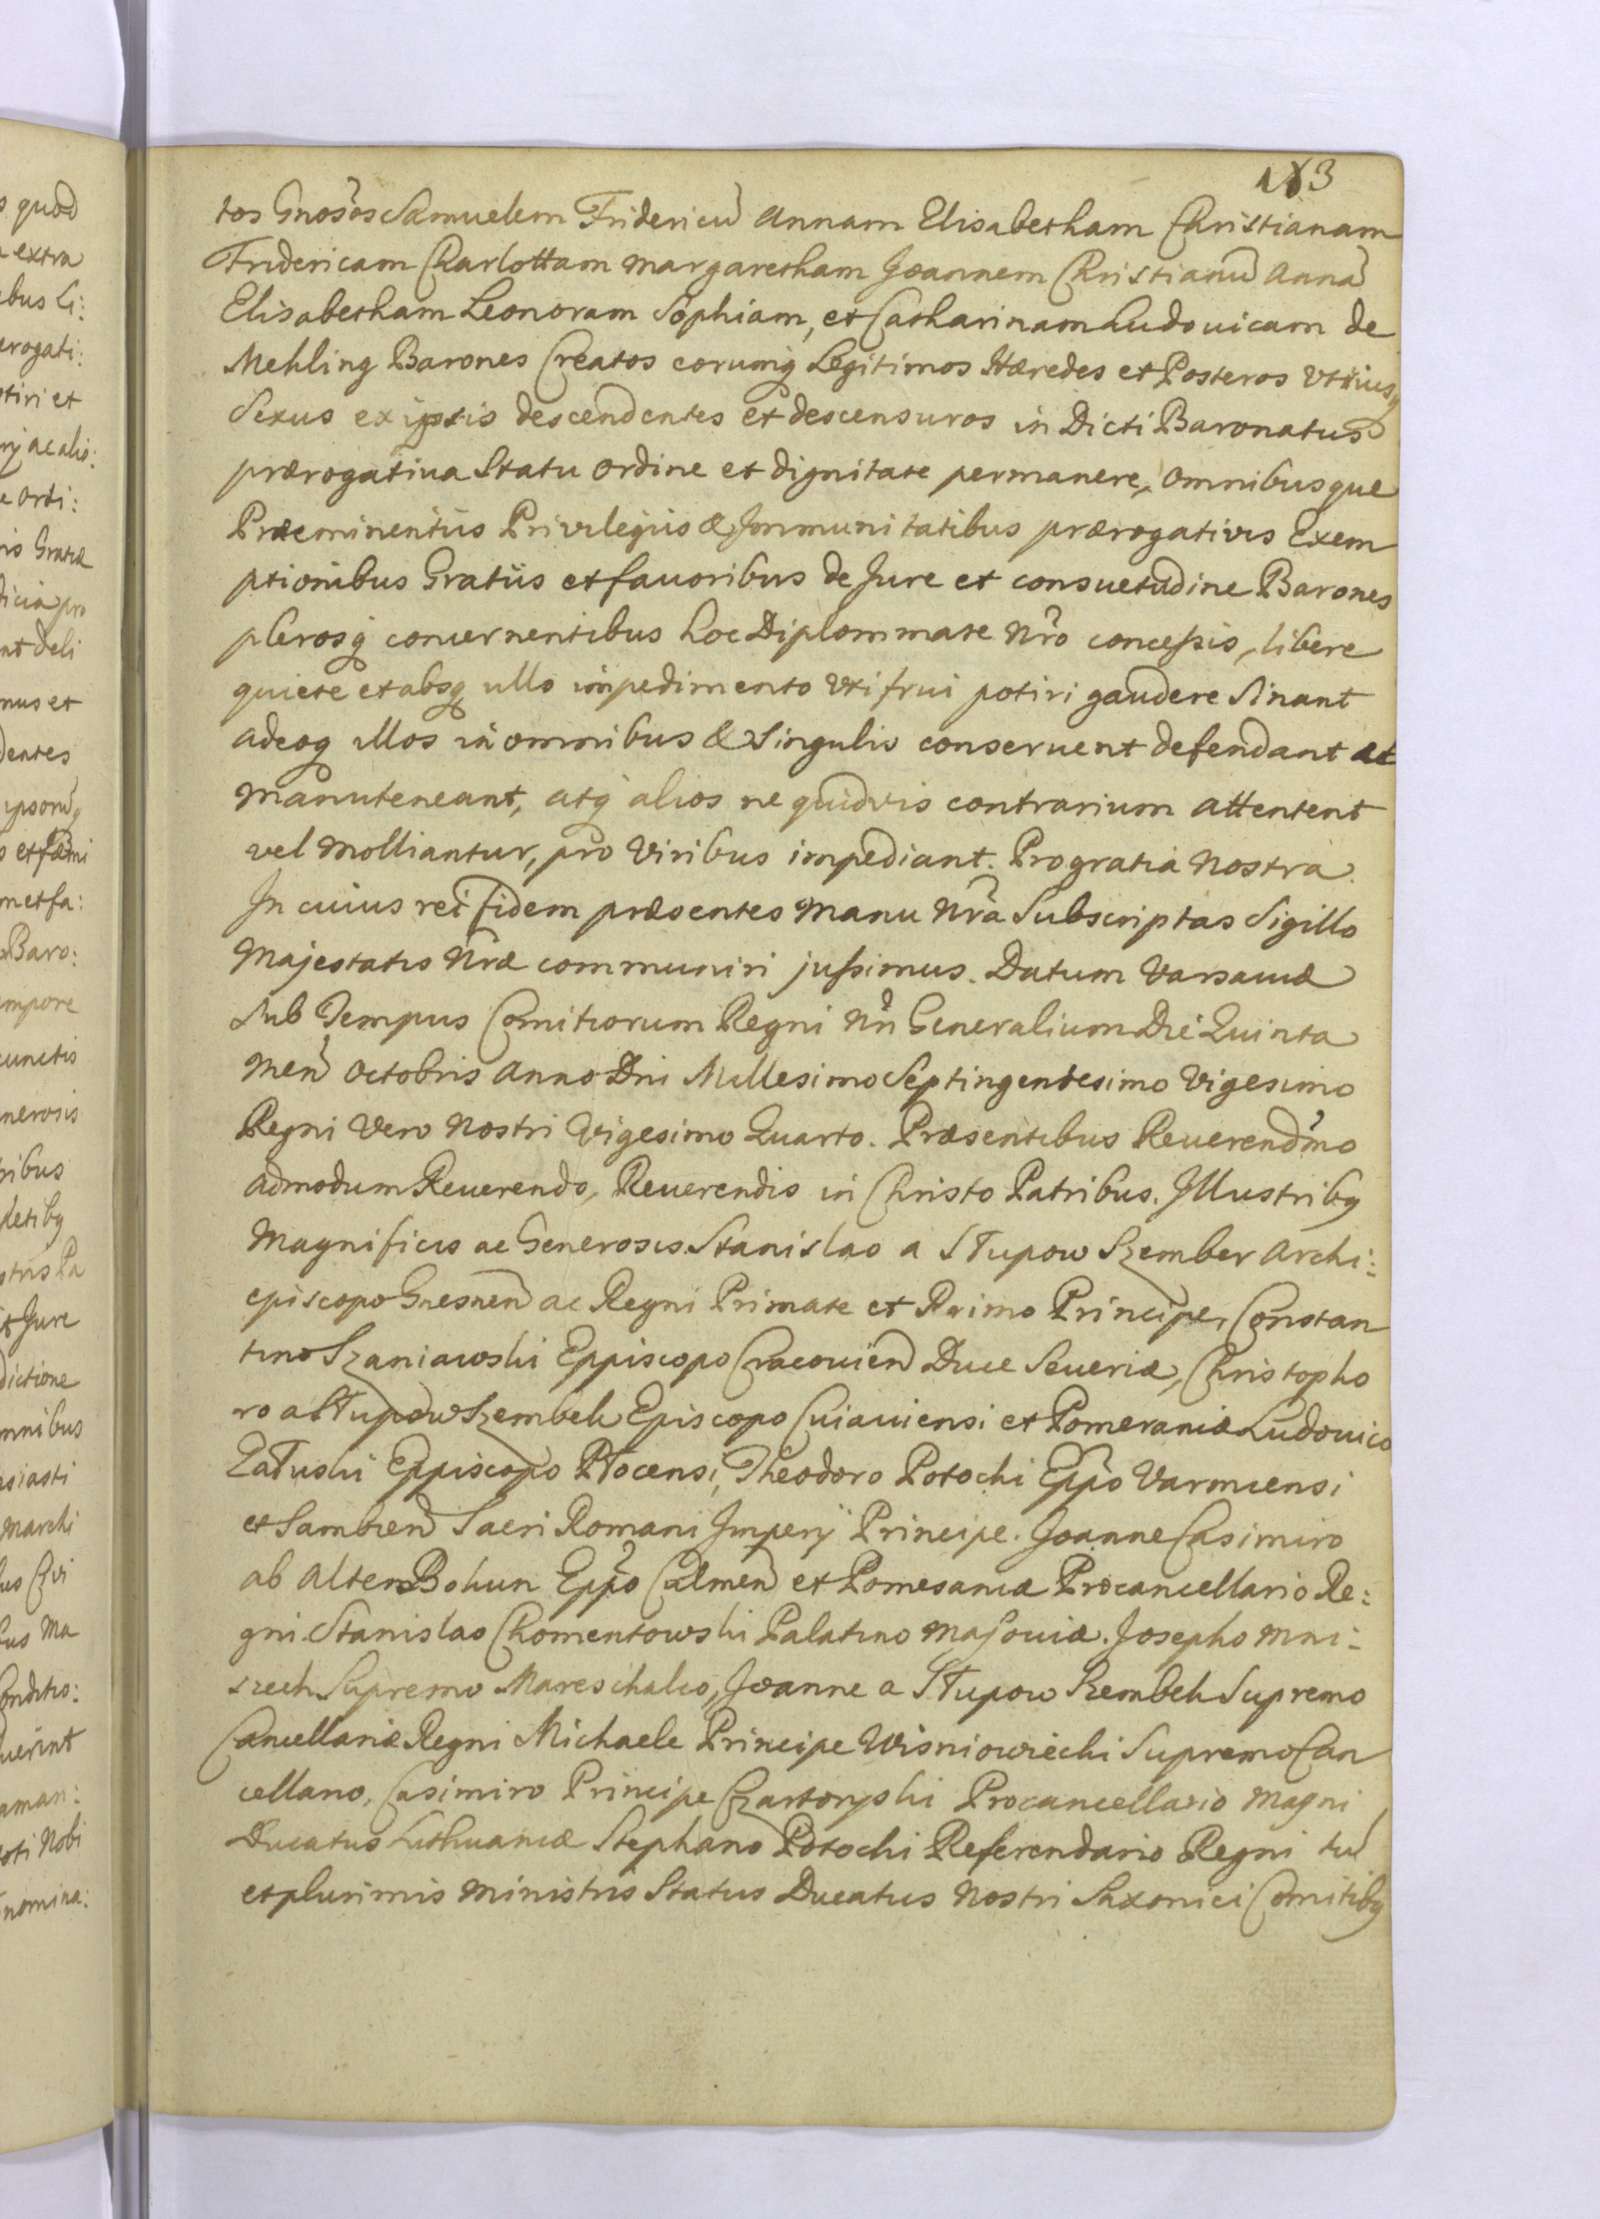 183
tos Gnosos Samuelem Fridericū Annam Elisabetham Christianam
Fridericam Charlottam Margaretham Joannem Christianū Annā
Elisabetham Leonoram Sophiam, et Catharinam Ludouicam de
Mehling Barones Creatos eorumq Legitimos Hæredes et Posteros Vtriusq
Sexus ex ipsis descendentes et descensuros in Dicti Baronatus
prærogatiua Statu ordine et dignitate permanere, omnibusque
Præeminentiis Privilegiis & Immunitatibus prærogativis Exem
ptionibus Gratiis et fauoribus de Jure et consuetudine Barones
plerosq concernentibus hoc Diplommate Nro concessis, libere
quiete et absq ullo impedimento Vti frui potiri gaudere Sinant
adeoq illos in omnibus & Singulis conseruent defendant et
Manuteneant, atq alios ne quidvis contrarium attentent
vel Molliantur, pro Viribus impediant. Pro gratia Nostra.
In cuius rei fidem præsentes Manu Nra Subscriptas Sigillo
Majestatis Nræ communiri jussimus. Datum Varsauiæ
Sub Tempus Comitiorum Regni Nri Generalium Die Quinta
Men Octobris Anno Dni Millesimo Septingentesimo Vigesimo
Regni Vero Nostri Vigesimo Quarto. Præsentibus Reuerendmo
admodum Reuerendo, Reuerendis in Christo Patribus. Illustribq
Magnificis ac Generosis Stanislao a Słupow Szember Archi:
episcopo Gnesnen ac Regni Primate et Primo Principe, Constan
tino Szaniawski Eppiscopo Cracouien Duce Seueriæ, Christopho
ro a Słupow Szembek Episcopo Cuiauiensi et Pomeraniæ Ludouico
Załuski Eppiscopo Płocensi, Theodoro Potocki Eppo Varmiensi
et Sambien Sacri Romani Imperij Principe. Joanne Casimiro
ab Alten Bokun Eppo Culmen et Pomesaniæ Procancellario Re:
gni Stanislao Chomentowski Palatino Masouiæ. Josepho Mni:
szech Supremo Mareschalco, Joanne a Słupow Szembek Supremo
Cancellariæ Regni Michaele Principe Wisniowiecki Supremo Can
cellario, Casimiro Principe Czartoryski Procancellario Magni
Ducatus Lithuaniæ Stephano Potocki Referendario Regni tū
et plurimis Ministris Status Ducatus Nostri Saxonici Comitibq